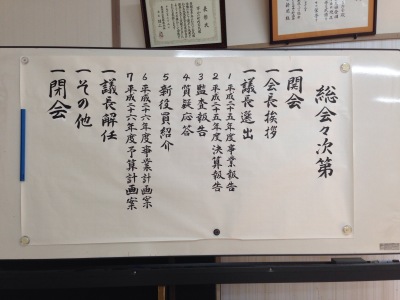 表彰状
総会々次第
一開会
一会長挨拶
一議長選出
1 平成二十五年度事業報告
2 平成二十五年度決算報告
3 監査報告
4 質疑応答
5 新役員紹介
6 平成二十六年度事業計画案
7 平成二十六年度予算計画案
一議長解任
一その他
一閉会